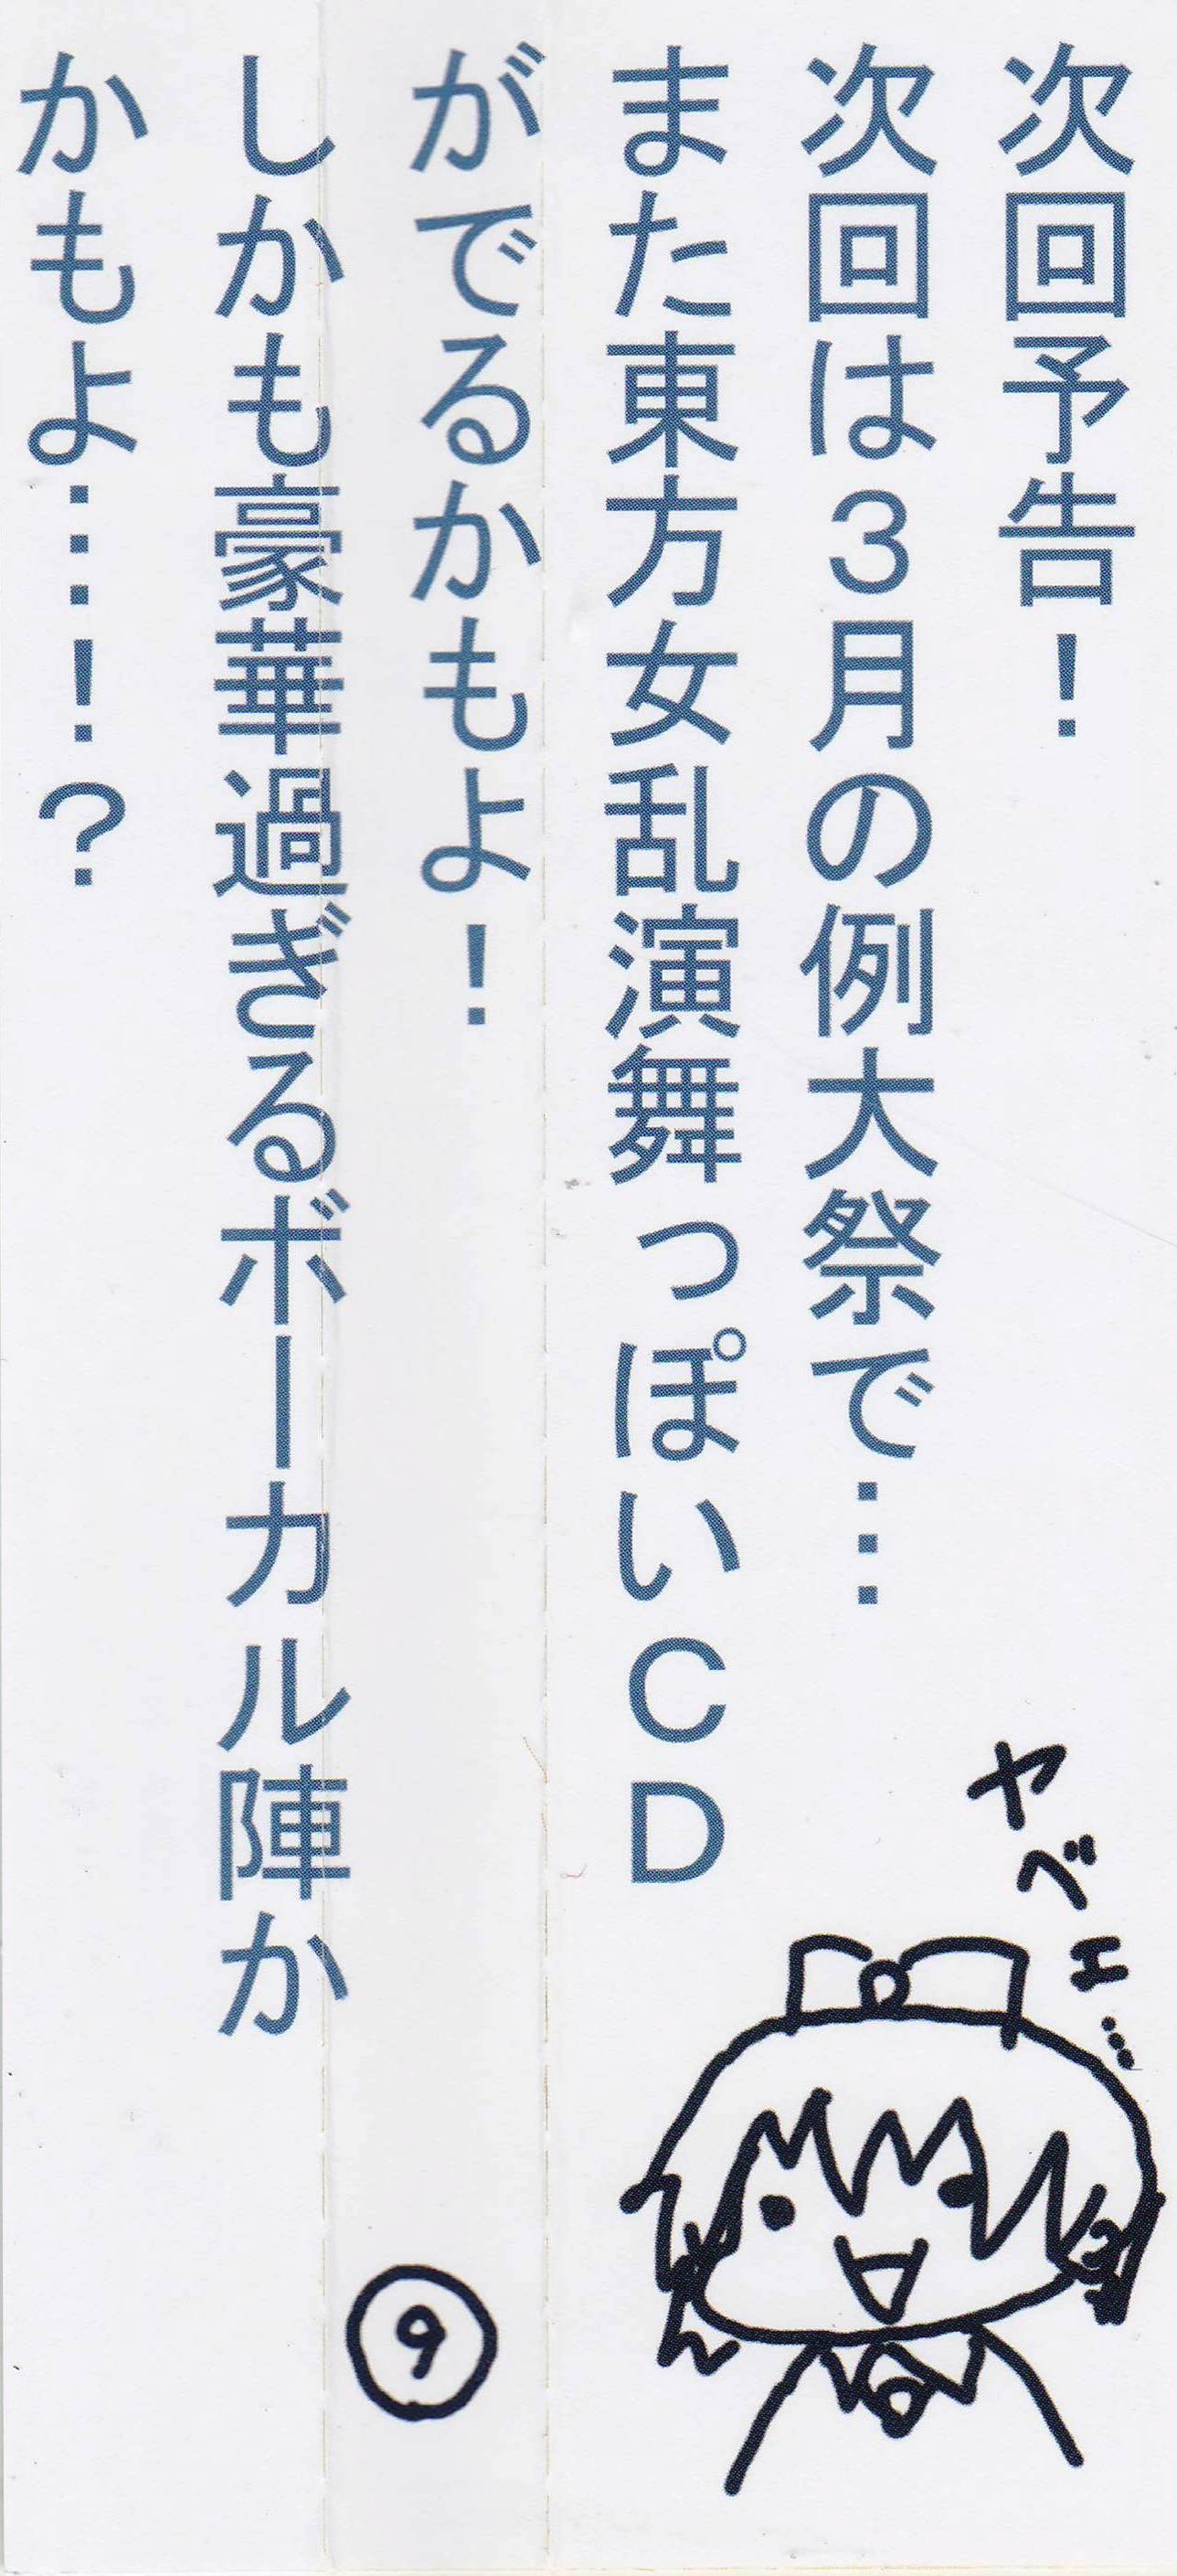 次回予告！
次回は３月の例大祭で…
また東方女乱演舞っぽいＣＤ
がでるかもよ！
しかも豪華過ぎるボーカル陣か
かもよ…！？
ヤベェ…
⑨